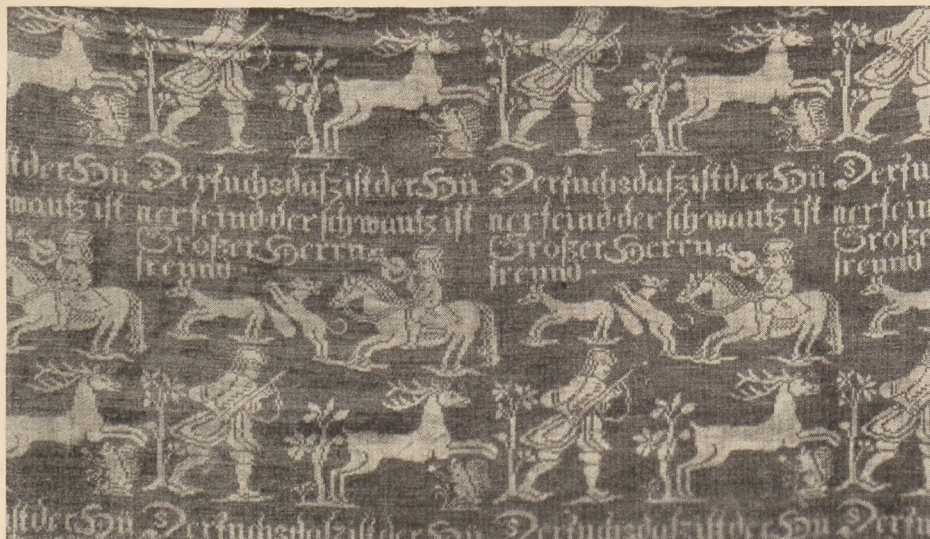 ſt der Hü Der fuchs daſz iſt der Hü Der fuchs daſz iſt der Hü Der fu
wantz iſt ner feind der ſchwantz iſt ner feind der ſchwantz iſt ner fein
Großer Herrn Großer Herrn Große
freund freund freund
ſt der Hü Der fuchs daſz iſt der Hü Der fuchs daſz iſt der Hü Der fu